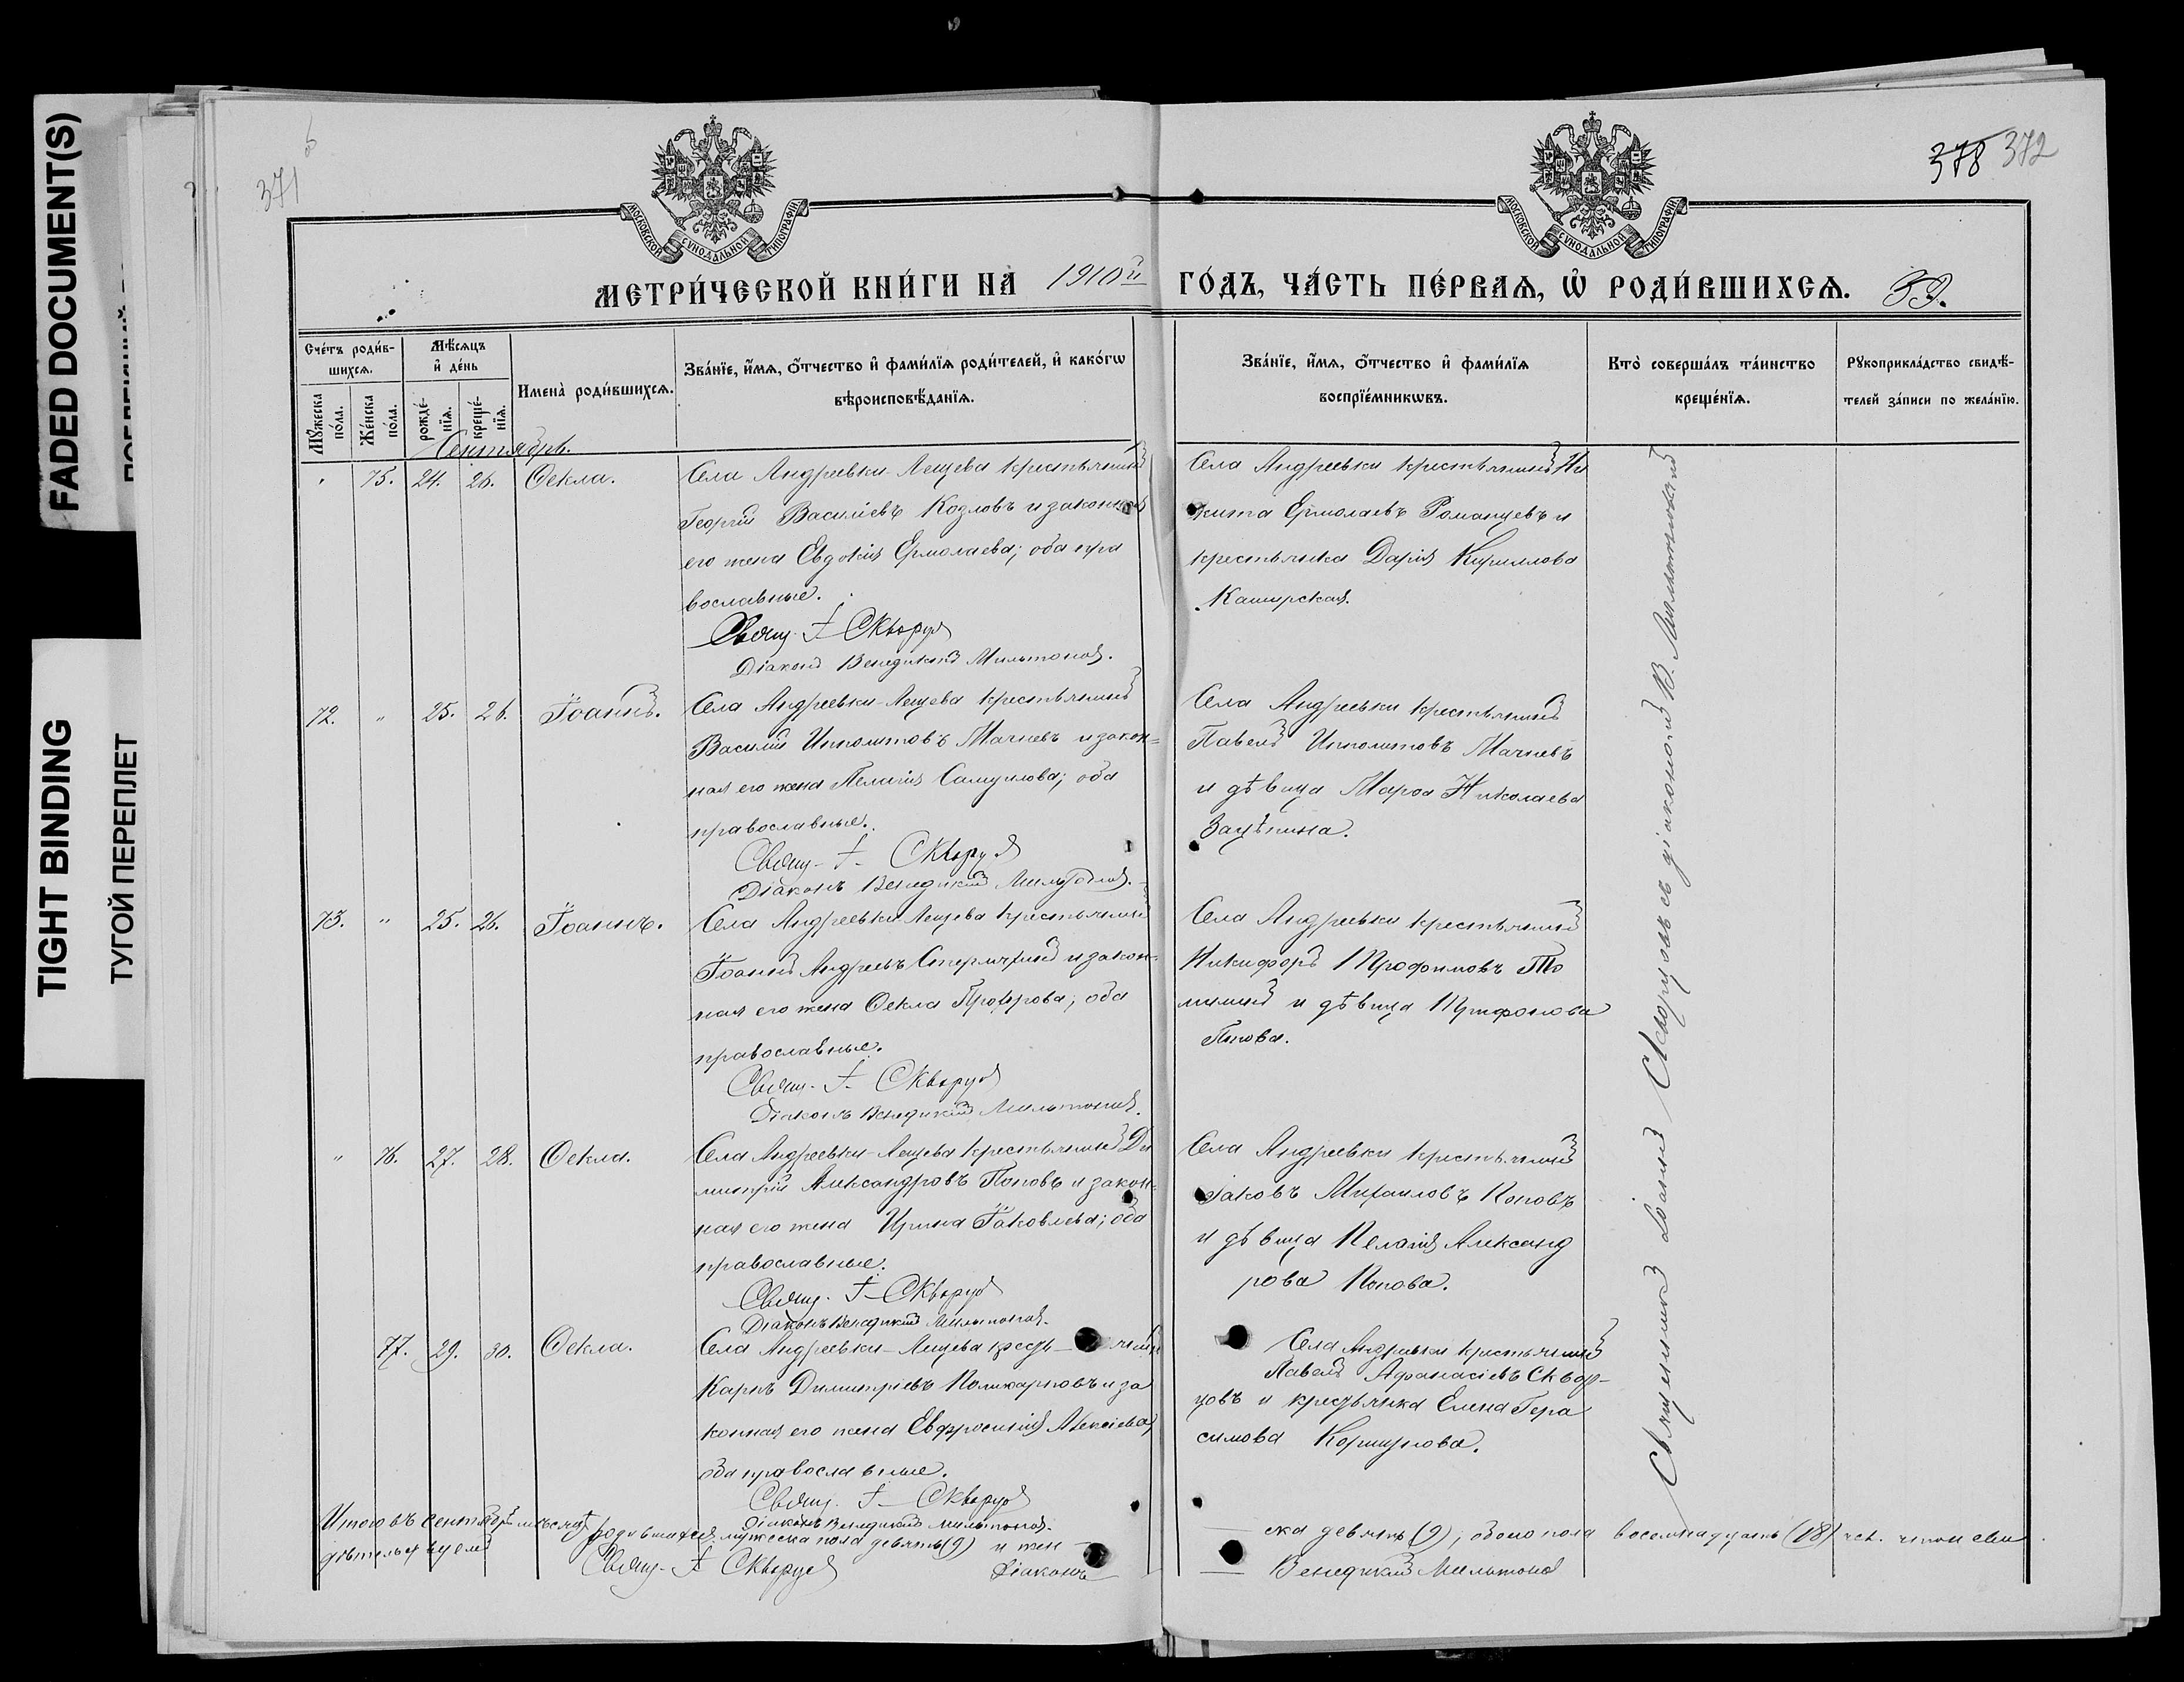 FADED DOCUMENT(S)
TIGHT BINDING
ТУГОЙ ПЕРЕПЛЕТ
371
378 372
МОСКОВСКОЙ СѴНОДАЛЬНОЙ ТИПОГРАФІИ
МОСКОВСКОЙ СѴНОДАЛЬНОЙ ТИПОГРАФІИ
МЕТРИ́ЧЕСКОЙ КНИ́ГИ НА 1910й ГО́ДЪ, ЧА́СТЬ ПЕ́РВАѦ, Ѽ РОДИ́ВШИХСѦ.
Сче́тъ роди́в-
шихсѧ.
Мꙋ́жеска по́ла.
Же́нска по́ла.
Мѣ́сѧцъ
и҆ де́нь
рожде́-
нїѧ.
креще́-
нїѧ.
Имена̀ роди́вшихсѧ.
Зва́нїе, и҆́мѧ, о҆́тчество и҆ фами́лїѧ роди́телей, и҆ како́гѡ
вѣроисповѣ́данїѧ.
Зва́нїе, и҆́мѧ, о҆́тчество и҆ фами́лїѧ
воспрїе́мникѡвъ.
Кто̀ соверша́лъ та́инство
креще́нїѧ.
Рꙋкоприкла́дство свидѣ́-
телей за́писи по жела́нїю.
Сентябрь.
75. 24. 26. Ѳекла.
Села Андреевки-Лещева крестьянинъ
Георгій Василіевъ Козловъ и законная
его жена Евдокія Ермолаева; оба пра
вославные.
Свящ. І. Скворцов
Діаконъ Венедиктъ Мильтоновъ.
Села Андреевки крестьянинъ Ни
кита Ермолаевъ Романцевъ и
крестьянка Дарія Кириллова
Каширская.
72. " 25. 26. Іоаннъ.
Села Андреевки-Лещева крестьянинъ
Василій Ипполитовъ Мачневъ и закон=
ная его жена Пелагія Самуилова; оба
православные.
Свящ. І. Скворцов
Діаконъ Венедиктъ Мильтоновъ.
Села Андреевки крестьянинъ
Павелъ Ипполитовъ Мачневъ
и дѣвица Марѳа Николаева
Зацѣпина.
73. " 25. 26. Іоаннъ.
Села Андреевки-Лещева крестьянинъ
Іоаннъ Андреевъ и закон-
ная его жена Ѳекла оба
православные.
Свящ. І. Скворцов
Діаконъ Венедиктъ Мильтоновъ.
Села Андреевки крестьянинъ
Никифоръ Трофимовъ То
милинъ и дѣвица Трифонова
Попова.
" 76. 27. 28. Ѳекла.
Села Андреевки-Лещева крестьянинъ Ди
митрій Александровъ Поповъ и закон-
ная его жена Ирина Іаковлева; оба
православные.
Свящ. І. Скворцов
Діаконъ Венедиктъ Мильтоновъ.
Села Андреевки крестьянинъ
Іаковъ Михаиловъ Поповъ
и дѣвица Пелагія Александ
рова Попова.
77. 29. 30. Ѳекла.
Села Андреевки-Лещева
Карпъ Димитріевъ Поликарповъ и за
конная его жена Евфросинія Алексіева,
оба православные.
Свящ. І. Скворцов
Діаконъ Венедиктъ Мильтоновъ.
Села Андреевки крестьянинъ
Павелъ Афанасіевъ Сквор-
цовъ и крестьянка Елена Гера
симова Коршунова.
Священникъ Іоаннъ Скворцовъ съ діакономъ В.
Итого въ сентябрѣ мѣсяцѣ родившихся мужеска пола девять (9) и жен — ска девять (9), обоего пола восемнадцать (18) чел. въ чемъ сви
дѣтельствуемъ
Свящ. І. Скворцов Діаконъ — Венедиктъ Мильтонов